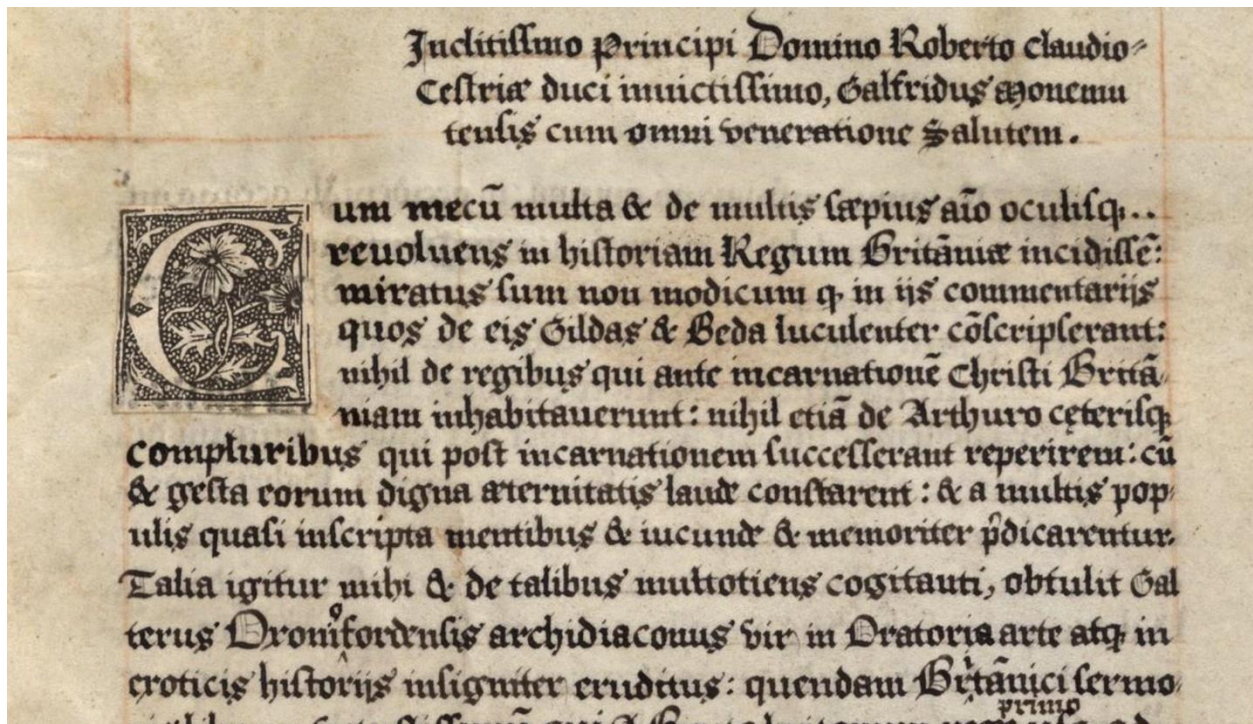 Inclitissimo Principi Domino Roberto Claudio⸗
Cestriæ duci inuictissimo, Galfridus Monemu
tensis cum omni veneratione Salutem.
Cum mecū multa & de multis sæpius aīo oculisq̨..
reuoluens in historiam Regum Britāniæ incidissē:
miratus sum non modicum q̨ in ijs commentarijs
quos de eis Gildas & Beda luculenter cōscripserant:
nihil de regibus qui ante incarnationē Christi Britā
niam inhabitauerunt: nihil etiā de Arthuro cęterisq̨
compluribus qui post incarnationem successerant reperirem: cū
& gesta eorum digna æternitatis laude constarent: & a multis pop
ulis quasi inscripta mentibus & iucunde & memoriter p̄dicarentur.
Talia igitur mihi & de talibus multotiens cogitauti, obtulit Gal
terus archidiaconus vir in Oratoria arte atq̨ in
exoticis historijs insigniter eruditus: quendam Britānici sermo
primo